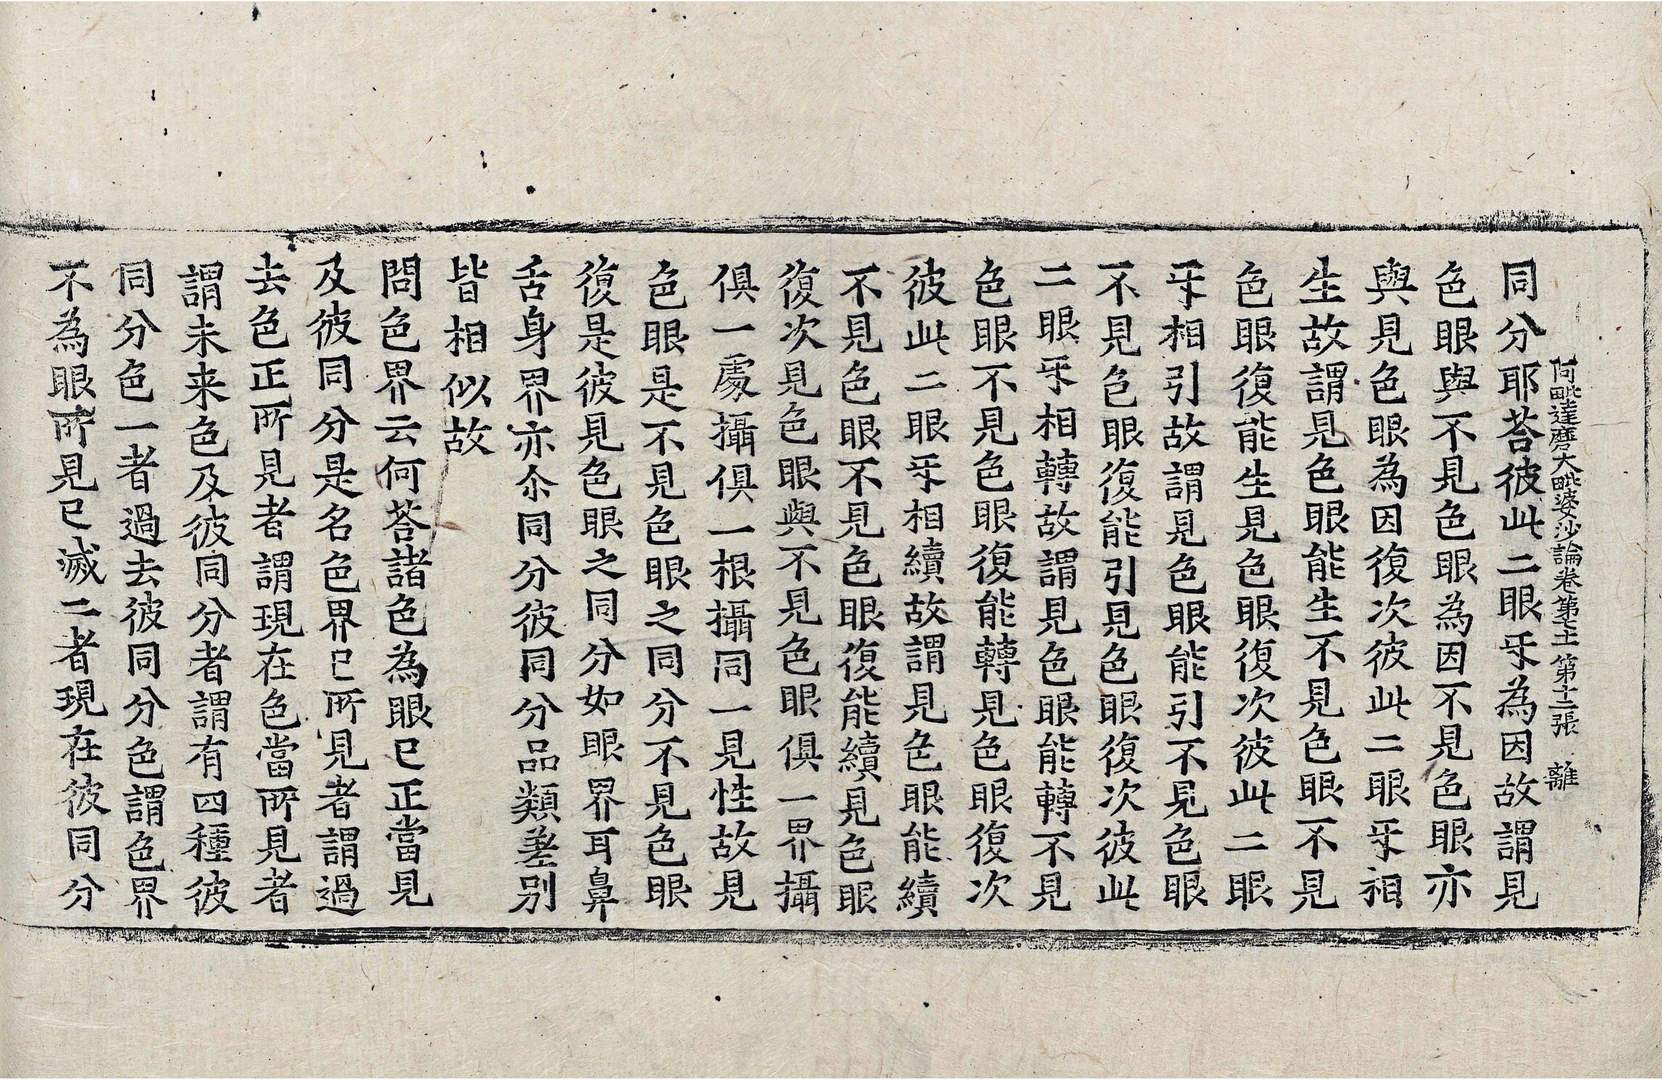 阿毗達磨大毗婆沙論卷第七十一 第十二張 離
同分耶荅彼此二眼㸦為因故謂見
色眼與不見色眼為因不見色眼亦
與見色眼為因復次彼此二眼㸦相
生故謂見色眼能生不見色眼不見
色眼復能生見色眼復次彼此二眼
㸦相引故謂見色眼能引不見色眼
不見色眼復能引見色眼復次彼此
二眼㸦相轉故謂見色眼能轉不見
色眼不見色眼復能轉見色眼復次
彼此二眼㸦相續故謂見色眼能續
不見色眼不見色眼復能續見色眼
復次見色眼與不見色眼俱一界攝
俱一處攝俱一根攝同一見性故見
色眼是不見色眼之同分不見色眼
復是彼見色眼之同分如眼界耳鼻
舌身界亦尒同分彼同分品類差別
皆相似故
問色界云何荅諸色為眼已正當見
及彼同分是名色界已所見者謂過
去色正所見者謂現在色當所見者
謂未来色及彼同分者謂有四種彼
同分色一者過去彼同分色謂色界
不為眼所見已滅二者現在彼同分